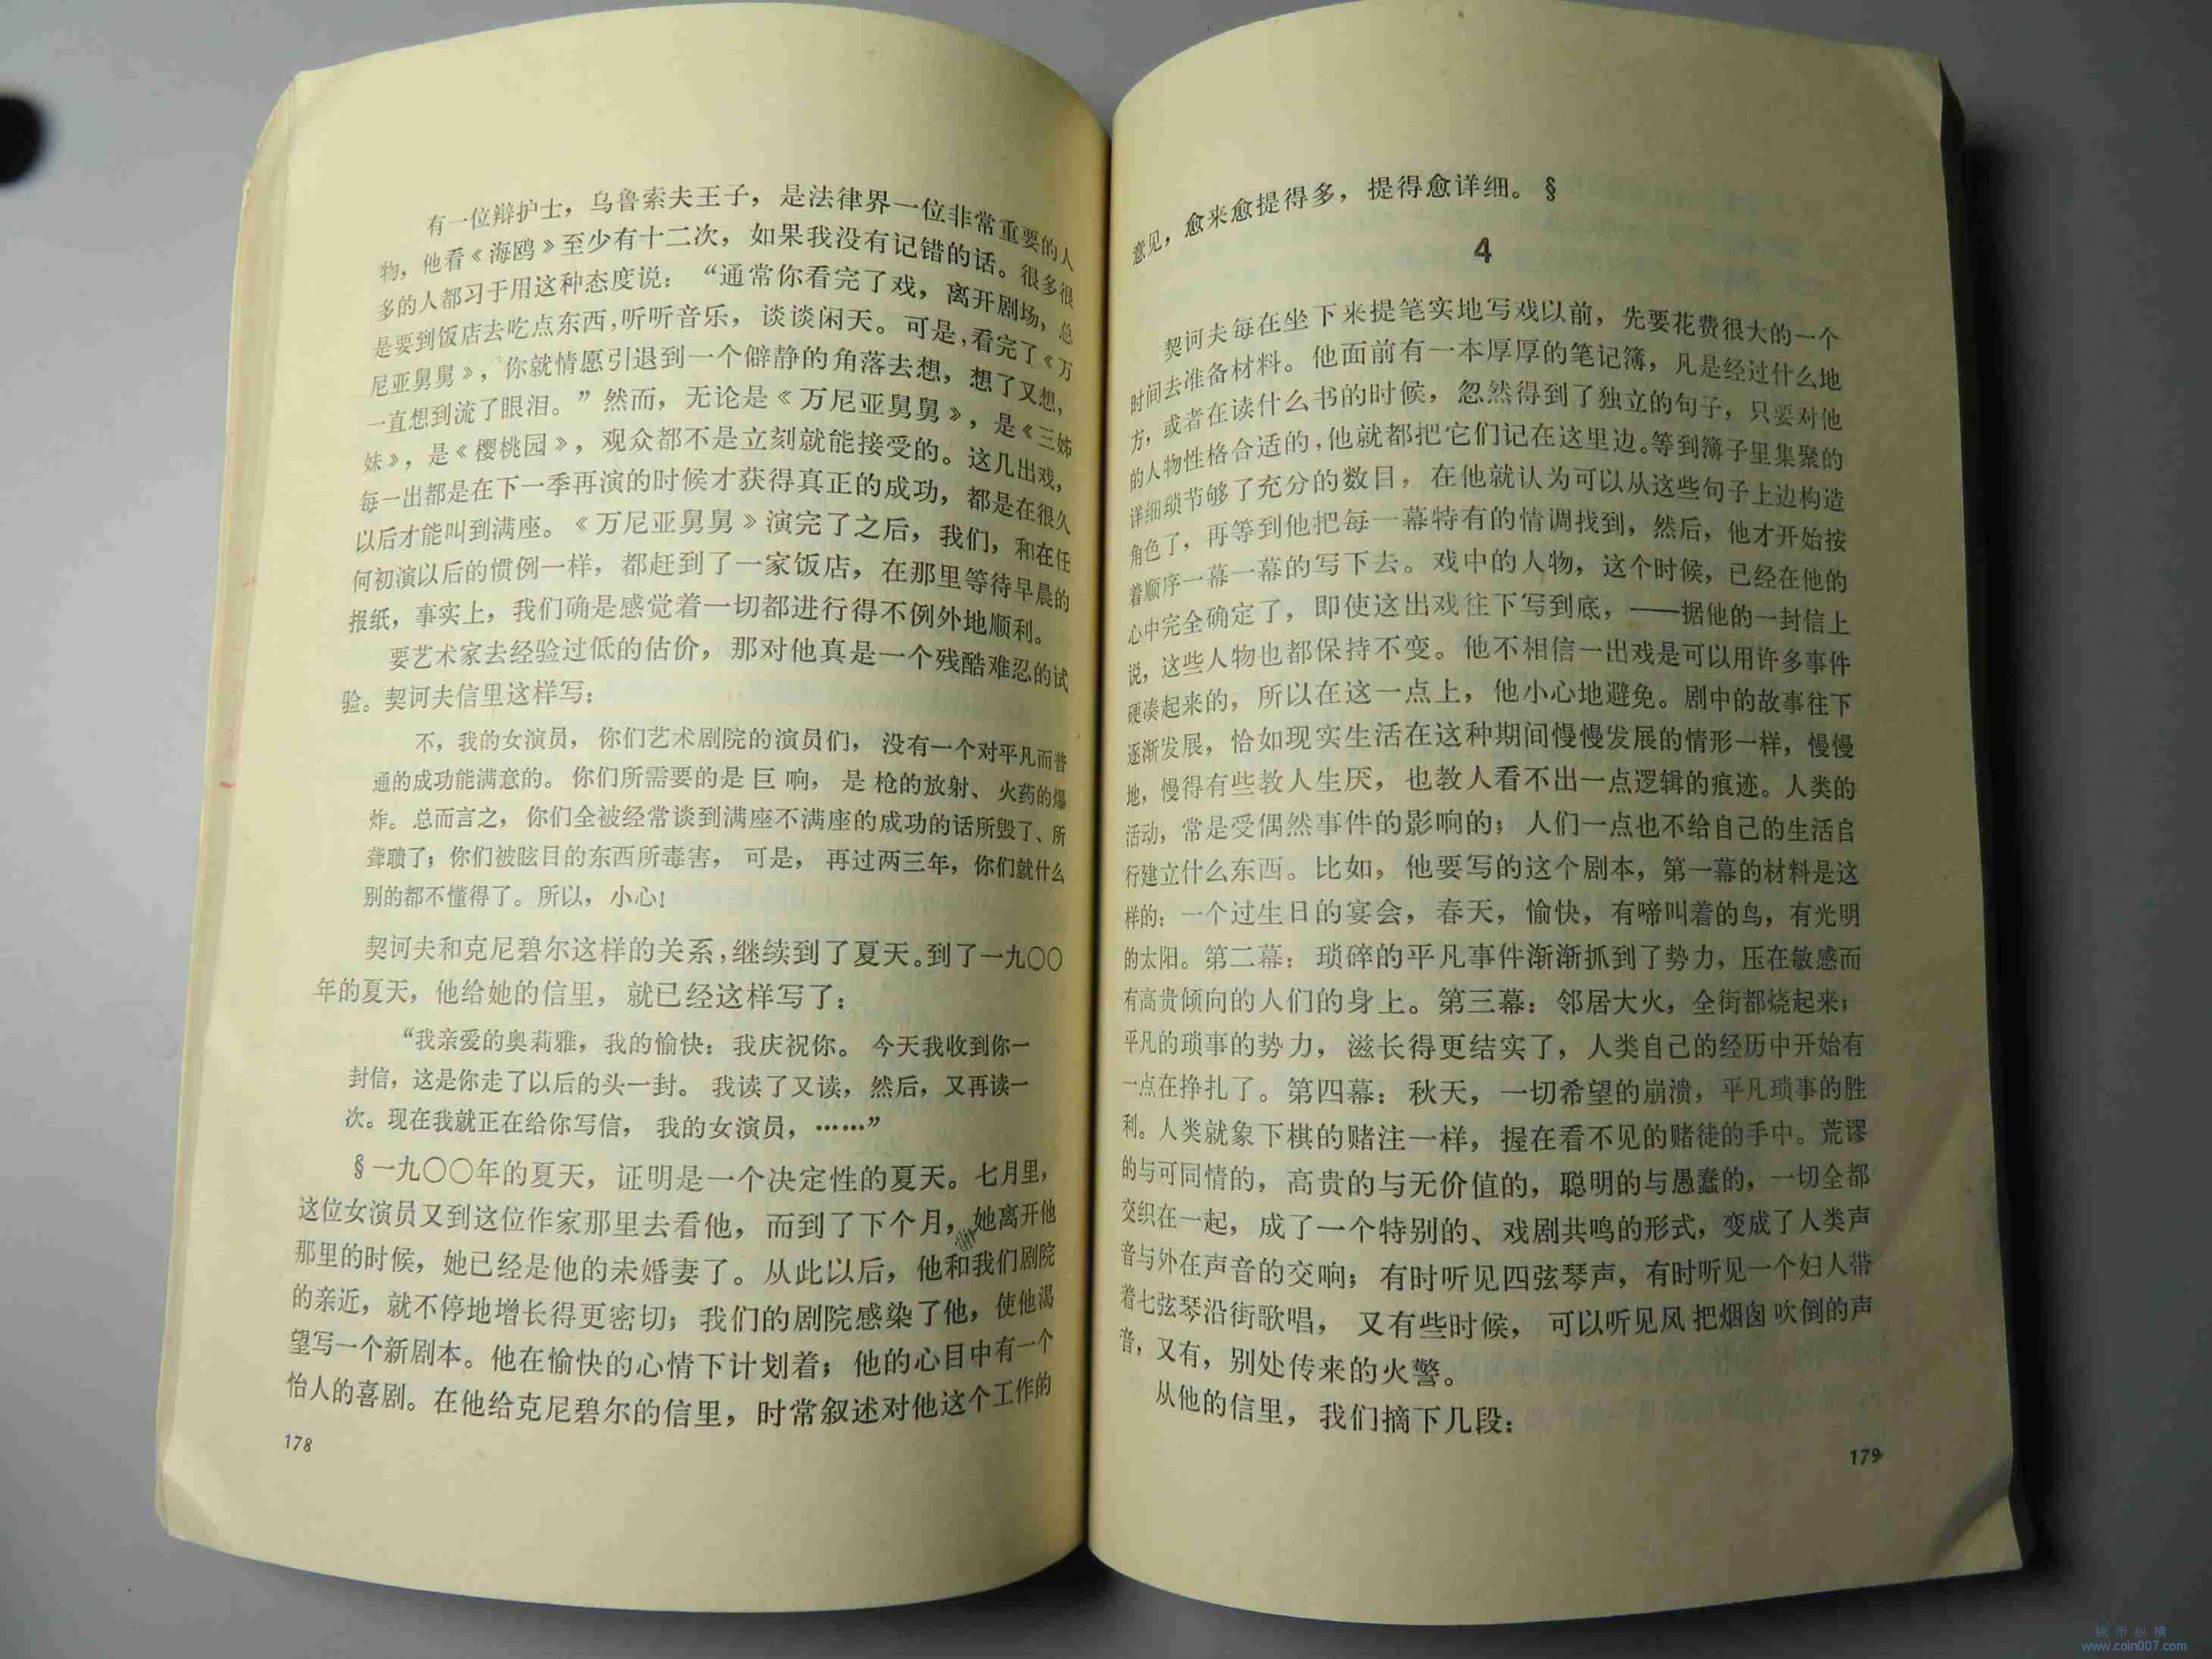 有一位辩护士，乌鲁索夫王子，是法律界一位非常重要的人
物，他看《海鸥》至少有十二次，如果我没有记错的话。很多很
多的人都习于用这种态度说：“通常你看完了戏，离开剧场，总
是要到饭店去吃点东西，听听音乐，谈谈闲天。可是，看完了《万
尼亚舅舅》，你就情愿引退到一个僻静的角落去想，想了又想，
一直想到流了眼泪。”然而，无论是《万尼亚舅舅》，是《三姊
妹》，是《樱桃园》，观众都不是立刻就能接受的。这几出戏，
每一出都是在下一季再演的时候才获得真正的成功，都是在很久
以后才能叫到满座。《万尼亚舅舅》演完了之后，我们，和在任
何初演以后的惯例一样，都赶到了一家饭店，在那里等待早晨的
报纸，事实上，我们确是感觉着一切都进行得不例外地顺利。
要艺术家去经验过低的估价，那对他真是一个残酷难忍的试
验。契诃夫信里这样写：
不，我的女演员，你们艺术剧院的演员们，没有一个对平凡而普
通的成功能满意的。你们所需要的是巨响，是枪的放射、火药的爆
炸。总而言之，你们全被经常谈到满座不满座的成功的话所毁了、所
聋聩了；你们被眩目的东西所毒害，可是，再过两三年，你们就什么
别的都不懂得了。所以，小心！
契诃夫和克尼碧尔这样的关系，继续到了夏天。到了一九〇〇
年的夏天，他给她的信里，就已经这样写了：
“我亲爱的奥莉雅，我的愉快：我庆祝你。今天我收到你一
封信，这是你走了以后的头一封。我读了又读，然后，又再读一
次。现在我就正在给你写信，我的女演员，……”
§一九〇〇年的夏天，证明是一个决定性的夏天。七月里，
这位女演员又到这位作家那里去看他，而到了下个月，她离开他
那里的时候，她已经是他的未婚妻了。从此以后，他和我们剧院
的亲近，就不停地增长得更密切；我们的剧院感染了他，使他渴
望写一个新剧本。他在愉快的心情下计划着；他的心目中有一个
怡人的喜剧。在他给克尼碧尔的信里，时常叙述对他这个工作的
178
意见，愈来愈提得多，提得愈详细。§
4
契诃夫每在坐下来提笔实地写戏以前，先要花费很大的一个
时间去准备材料。他面前有一本厚厚的笔记簿，凡是经过什么地
方，或者在读什么书的时候，忽然得到了独立的句子，只要对他
的人物性格合适的，他就都把它们记在这里边。等到簿子里集聚的
详细琐节够了充分的数目，在他就认为可以从这些句子上边构造
角色了，再等到他把每一幕特有的情调找到，然后，他才开始按
着顺序一幕一幕的写下去。戏中的人物，这个时候，已经在他的
心中完全确定了，即使这出戏往下写到底，——据他的一封信上
说，这些人物也都保持不变。他不相信一出戏是可以用许多事件
硬凑起来的，所以在这一点上，他小心地避免。剧中的故事往下
逐渐发展，恰如现实生活在这种期间慢慢发展的情形一样，慢慢
地，慢得有些教人生厌，也教人看不出一点逻辑的痕迹。人类的
活动，常是受偶然事件的影响的；人们一点也不给自己的生活自
行建立什么东西。比如，他要写的这个剧本，第一幕的材料是这
样的：一个过生日的宴会，春天，愉快，有啼叫着的鸟，有光明
的太阳。第二幕：琐碎的平凡事件渐渐抓到了势力，压在敏感而
有高贵倾向的人们的身上。第三幕：邻居大火，全街都烧起来；
平凡的琐事的势力，滋长得更结实了，人类自己的经历中开始有
一点在挣扎了。第四幕：秋天，一切希望的崩溃，平凡琐事的胜
利。人类就象下棋的赌注一样，握在看不见的赌徒的手中。荒谬
的与可同情的，高贵的与无价值的，聪明的与愚蠢的，一切全都
交织在一起，成了一个特别的、戏剧共鸣的形式，变成了人类声
音与外在声音的交响；有时听见四弦琴声，有时听见一个妇人带
着七弦琴沿街歌唱，又有些时候，可以听见风把烟囱吹倒的声
音，又有，别处传来的火警。
从他的信里，我们摘下几段：
179
钱币纵横
www.coin007.com